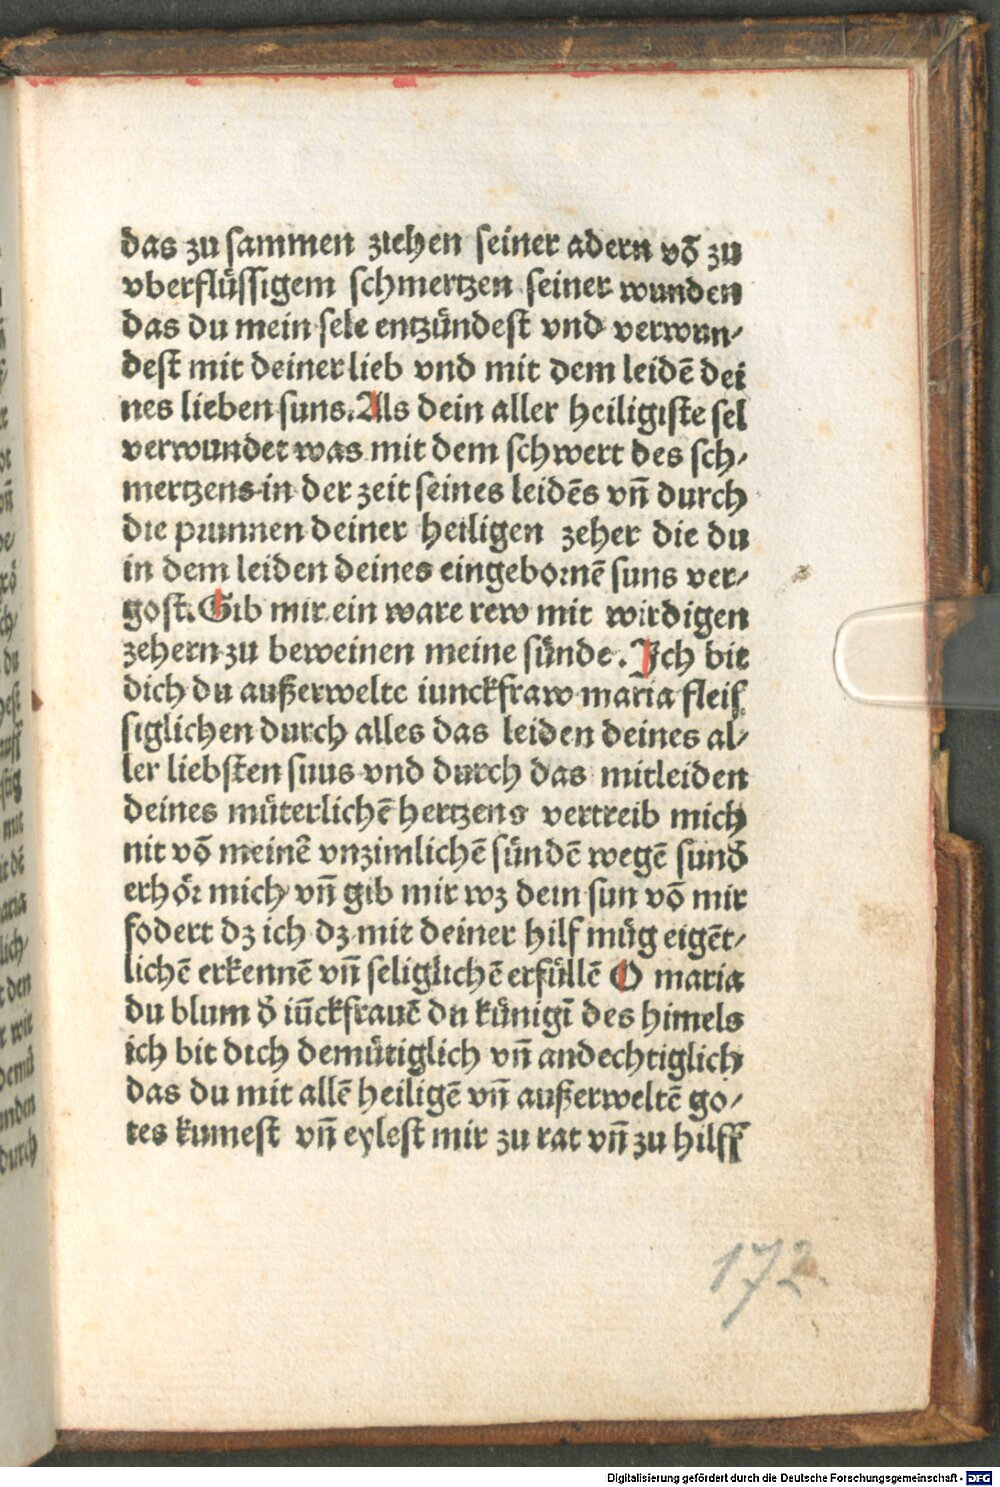 das zu sammen ziehen seiner adern võ zu
vberflüssigem schmertzen seiner wunden
das du mein sele entzündest vnd verwun⸗
dest mit deiner lieb vnd mit dem leidẽ dei
nes lieben suns. Als dein aller heiligiste sel
verwundet was mit dem schwert des sch⸗
mertzens in der zeit seines leidẽs vñ durch
die prunnen deiner heiligen zeher die du
in dem leiden deines eingebornẽ suns ver⸗
gost. Gib mir ein ware rew mit wirdigen
zehern zu beweinen meine sünde. Ich bit
dich du außerwelte iunckfraw maria fleis
siglichen durch alles das leiden deines al⸗
ler liebsten suus vnd durch das mitleiden
deines müterlichẽ hertzens vertreib mich
nit võ meinẽ vnzimlichẽ sündẽ wegẽ sund̄
erhör mich vñ gib mir wz dein sun võ mir
fodert dz ich dz mit deiner hilf müg eigẽt⸗
lichẽ erkennẽ vñ seliglichẽ erfüllẽ O maria
du blum d̄ iũckfrauẽ du künigĩ des himels
ich bit dich demütiglich vñ andechtiglich
das du mit allẽ heiligẽ vñ außerweltẽ go⸗
tes kumest vñ eylest mir zu rat vñ zu hilff
172.
Digitalisierung gefördert durch die Deutsche Forschungsgemeinschaft - DFG